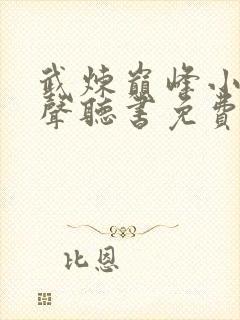 武煉巔峰小
聲聽書免費
比恩